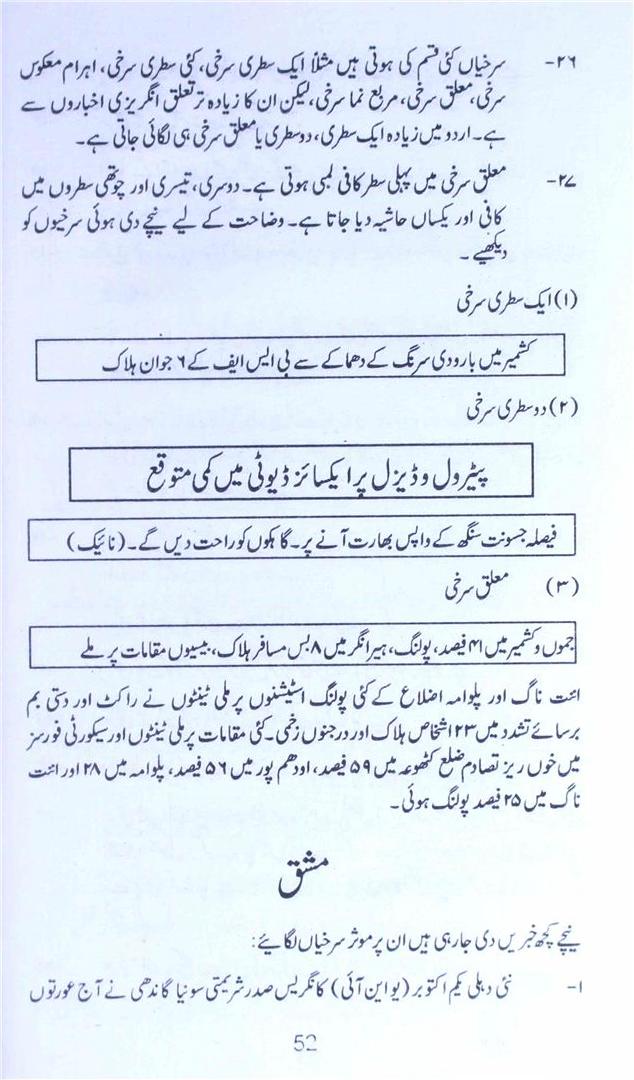 ۲۶- سرخیاں کئی قسم کی ہوتی ہیں مثلاً ایک سطری سرخی، کئی سطری سرخی، اہرام معکوس
سرخی، معلق سرخی، مربع نما سرخی، لیکن ان کا زیادہ تر تعلق انگریزی اخباروں سے
ہے۔ اردو میں زیادہ ایک سطری، دو سطری یا معلق سرخی ہی لگائی جاتی ہے۔
۲۷- معلق سرخی میں پہلی سطر کافی لمبی ہوتی ہے۔ دوسری، تیسری اور چوتھی سطروں میں
کافی اور یکساں حاشیہ دیا جاتا ہے۔ وضاحت کے لیے نیچے دی ہوئی سرخیوں کو
دیکھیے۔
(۱) ایک سطری سرخی
کشمیر میں بارودی سرنگ کے دھماکے سے بی ایس ایف کے ۶ جوان ہلاک
(۲) دو سطری سرخی
پیٹرول و ڈیزل پر ایکسائز ڈیوٹی میں کمی متوقع
فیصلہ جسونت سنگھ کے واپس بھارت آنے پر۔ گاہکوں کو راحت دیں گے۔ (نائیک)
(۳) معلق سرخی
جموں و کشمیر میں ۴۱ فیصد، پولنگ، ہیرانگر میں ۸ بس مسافر ہلاک، بیسیوں مقامات پر ملے
اننت ناگ اور پلوامہ اضلاع کے کئی پولنگ اسٹیشنوں پر ملی ٹینٹوں نے راکٹ اور دستی بم
برسائے تشدد میں ۲۳ اشخاص ہلاک اور درجنوں زخمی۔ کئی مقامات پر ملی ٹینٹوں اور سیکورٹی فورسز
میں خوں ریز تصادم ضلع کٹھوعہ میں ۵۹ فیصد، اودھم پور میں ۵۶ فیصد، پلوامہ میں ۲۸ اور اننت
ناگ میں ۲۵ فیصد پولنگ ہوئی۔
مشق
نیچے کچھ خبریں دی جا رہی ہیں ان پر موثر سرخیاں لگائیے:
۱- نئی دہلی یکم اکتوبر (یو این آئی) کانگریس صدر شریمتی سونیا گاندھی نے آج عورتوں
52